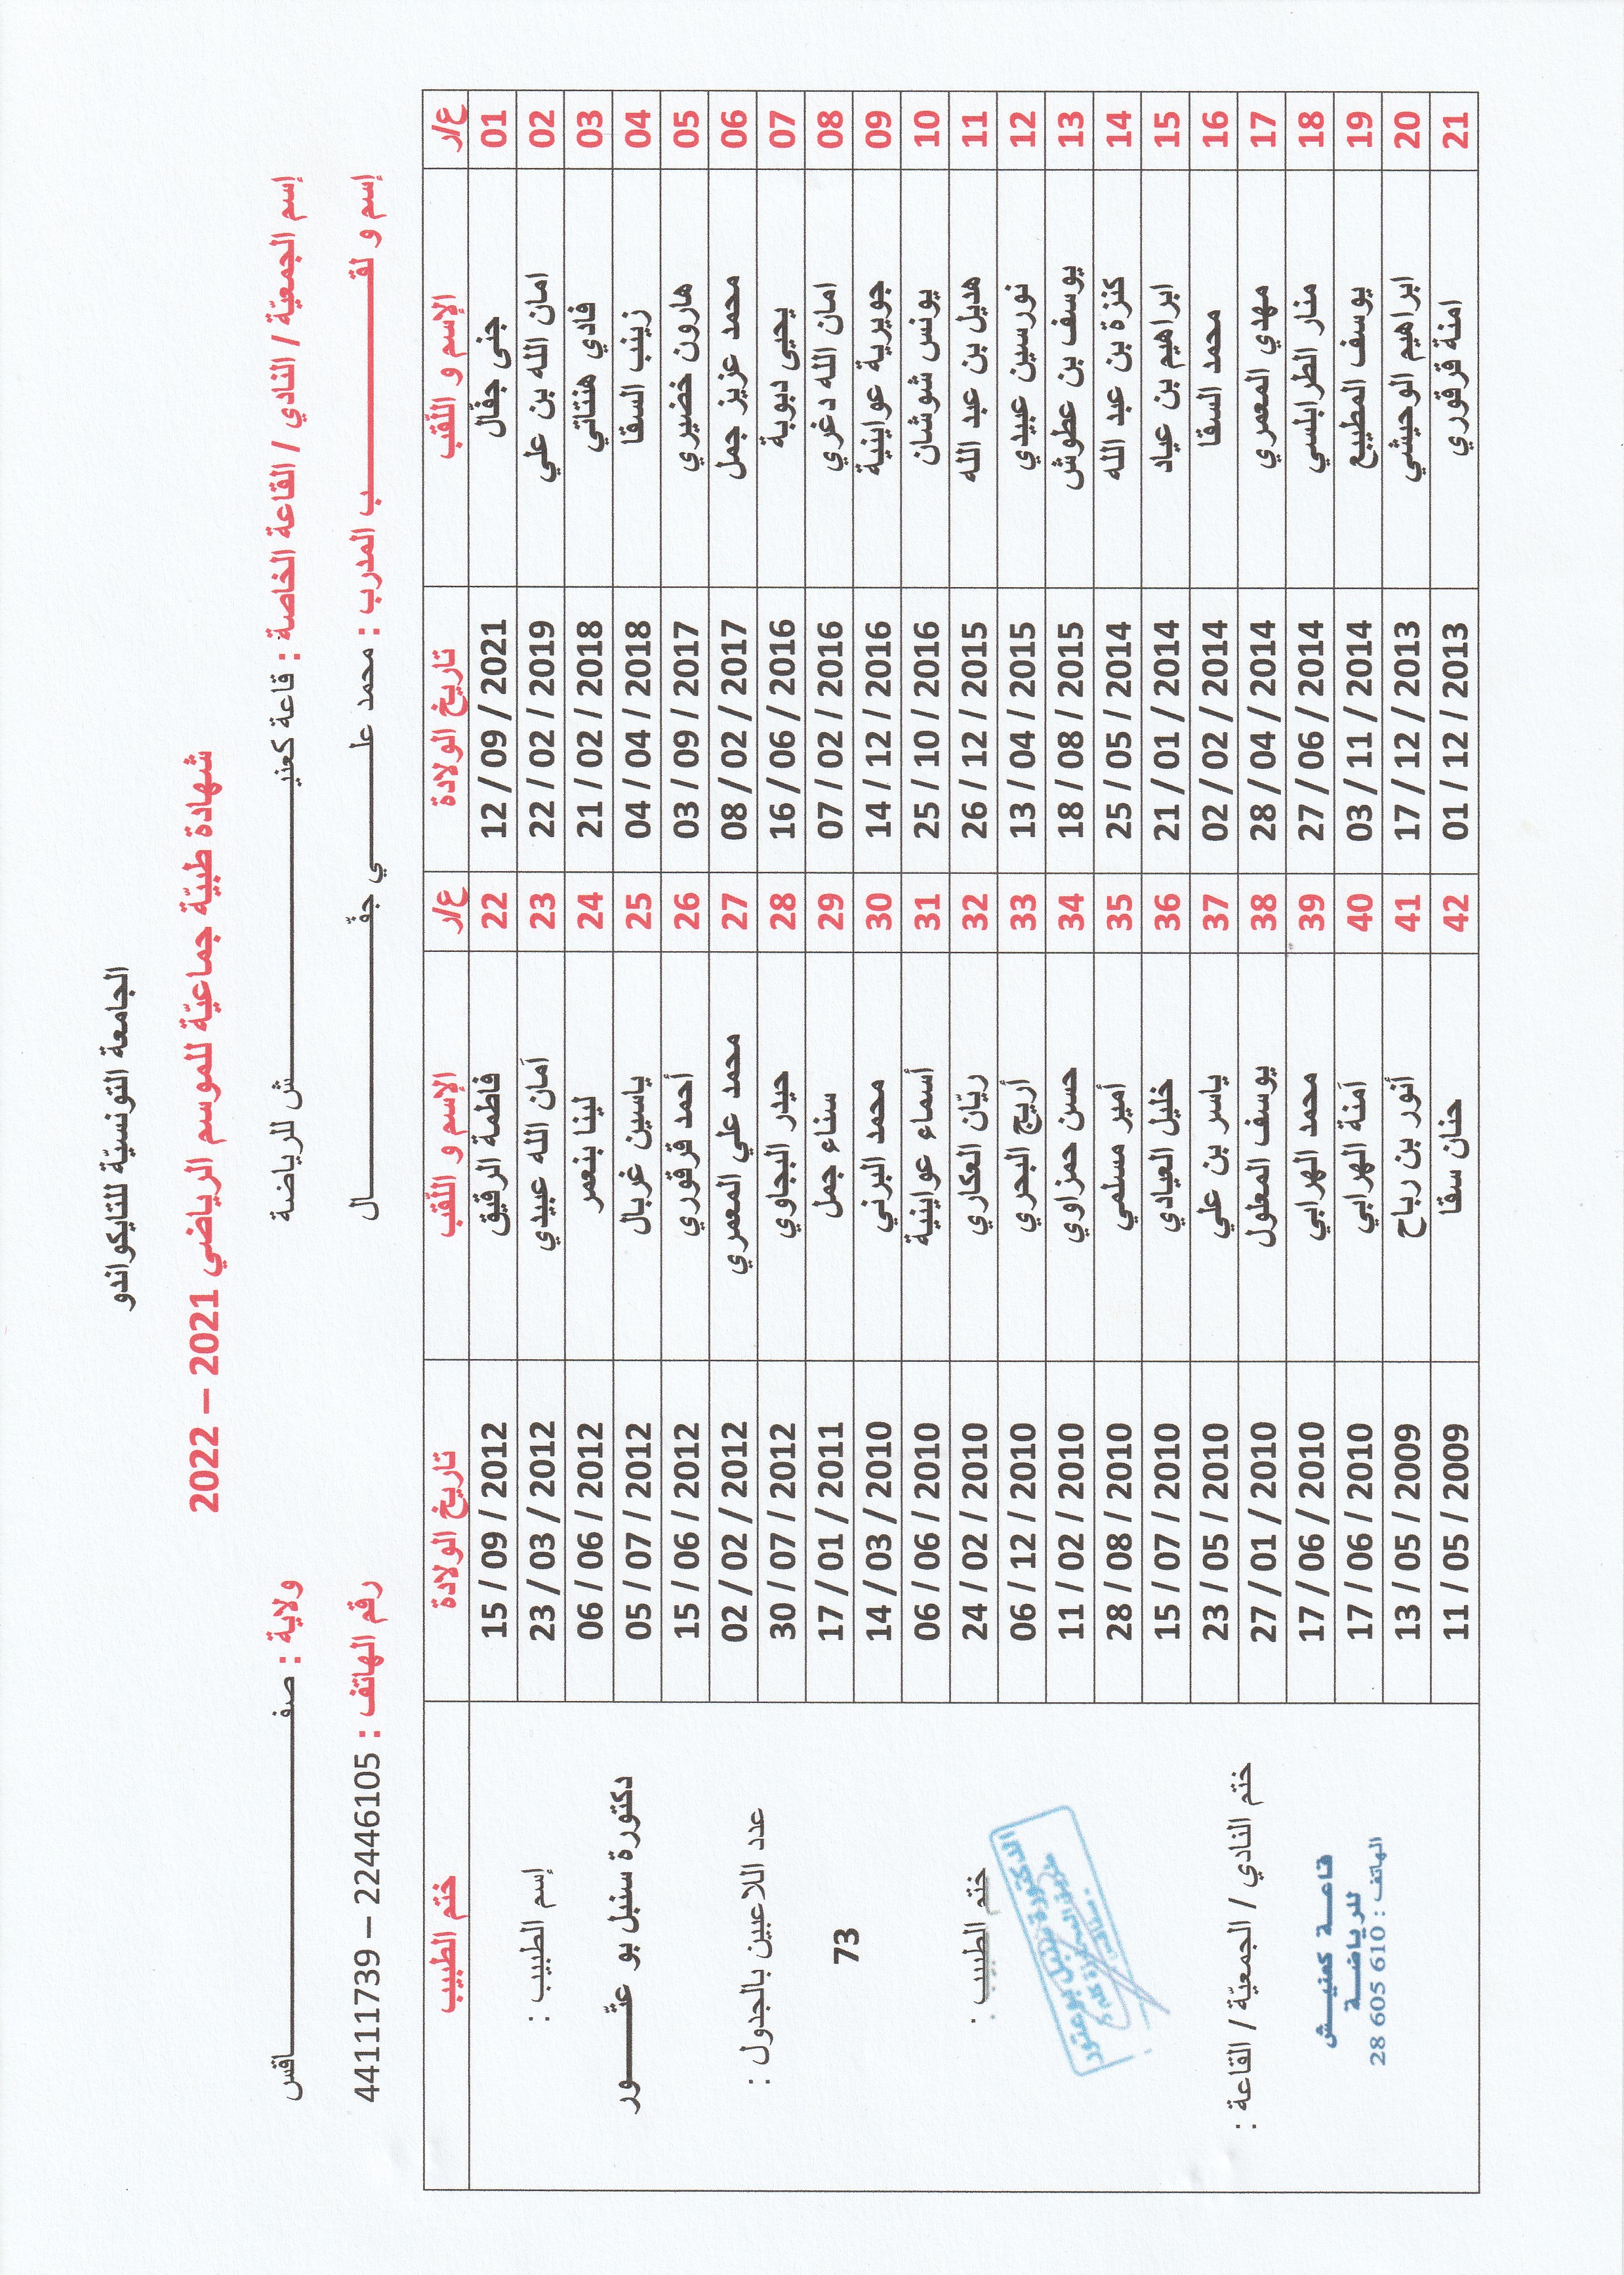 الجامعة التونسيّة للتايكواندو
شهادة طبيّة جماعيّة للموسم الرياضي 2021 – 2022
إسم الجمعيّة / النادي / القاعة الخاصة : قاعة كعنيـــــــــش للرياضة ولاية : صفـــــــــاقس
إسم و لقـــــــــب المدرب : محمد علـــــــــي جفّـــــــــال رقم الهاتف : 22446105 – 44111739
ع/ر الإسم و اللّقب تاريخ الولادة ع/ر الإسم و اللّقب تاريخ الولادة ختم الطبيب
01 جنى جفّال 12 / 09 / 2021 22 فاطمة الرقيق 15 / 09 / 2012
02 امان الله بن علي 22 / 02 / 2019 23 أمان الله عبيدي 23 / 03 / 2012
03 فادي هنتاتي 21 / 02 / 2018 24 لينا بنعمر 06 / 06 / 2012
04 زينب السقا 04 / 04 / 2018 25 ياسين غربال 05 / 07 / 2012
05 هارون خضيري 03 / 09 / 2017 26 أحمد قرقوري 15 / 06 / 2012
06 محمد عزيز جمل 08 / 02 / 2017 27 محمد علي المعمري 02 / 02 / 2012
07 يحيى دبوبة 16 / 06 / 2016 28 حيدر البجاوي 30 / 07 / 2012
08 امان الله دغري 07 / 02 / 2016 29 سناء جمل 17 / 01 / 2011
09 جويرية عواينية 14 / 12 / 2016 30 محمد البرني 14 / 03 / 2010
10 يونس شوشان 25 / 10 / 2016 31 أسماء عواينية 06 / 06 / 2010
11 هديل بن عبد الله 26 / 12 / 2015 32 ريّان العكاري 24 / 02 / 2010
12 نورسين عبيدي 13 / 04 / 2015 33 أريج البحري 06 / 12 / 2010
13 يوسف بن عطوش 18 / 08 / 2015 34 حسن حمزاوي 11 / 02 / 2010
14 كنزة بن عبد الله 25 / 05 / 2014 35 أمير مسلمي 28 / 08 / 2010
15 ابراهيم بن عياد 21 / 01 / 2014 36 خليل العيادي 15 / 07 / 2010
16 محمد السقا 02 / 02 / 2014 37 ياسر بن علي 23 / 05 / 2010
17 مهدي المعمري 28 / 04 / 2014 38 يوسف المعلول 27 / 01 / 2010
18 منار الطرابلسي 27 / 06 / 2014 39 محمد الهرابي 17 / 06 / 2010
19 يوسف المطيبع 03 / 11 / 2014 40 أمنة الهرابي 17 / 06 / 2010
20 ابراهيم الوحيشي 17 / 12 / 2013 41 أنور بن رباح 13 / 05 / 2009
21 امنة قرقوري 01 / 12 / 2013 42 حنان سقا 11 / 05 / 2009
إسم الطبيب :
دكتورة سنبل بو عتّـــــــــور
عدد اللاعبين بالجدول :
73
ختم الطبيب :
الدكتورة سنبل بوعتور
ختم النادي / الجمعيّة / القاعة :
قاعـــة كعنيـــش
للرياضـــة
الهاتف : 610 605 28